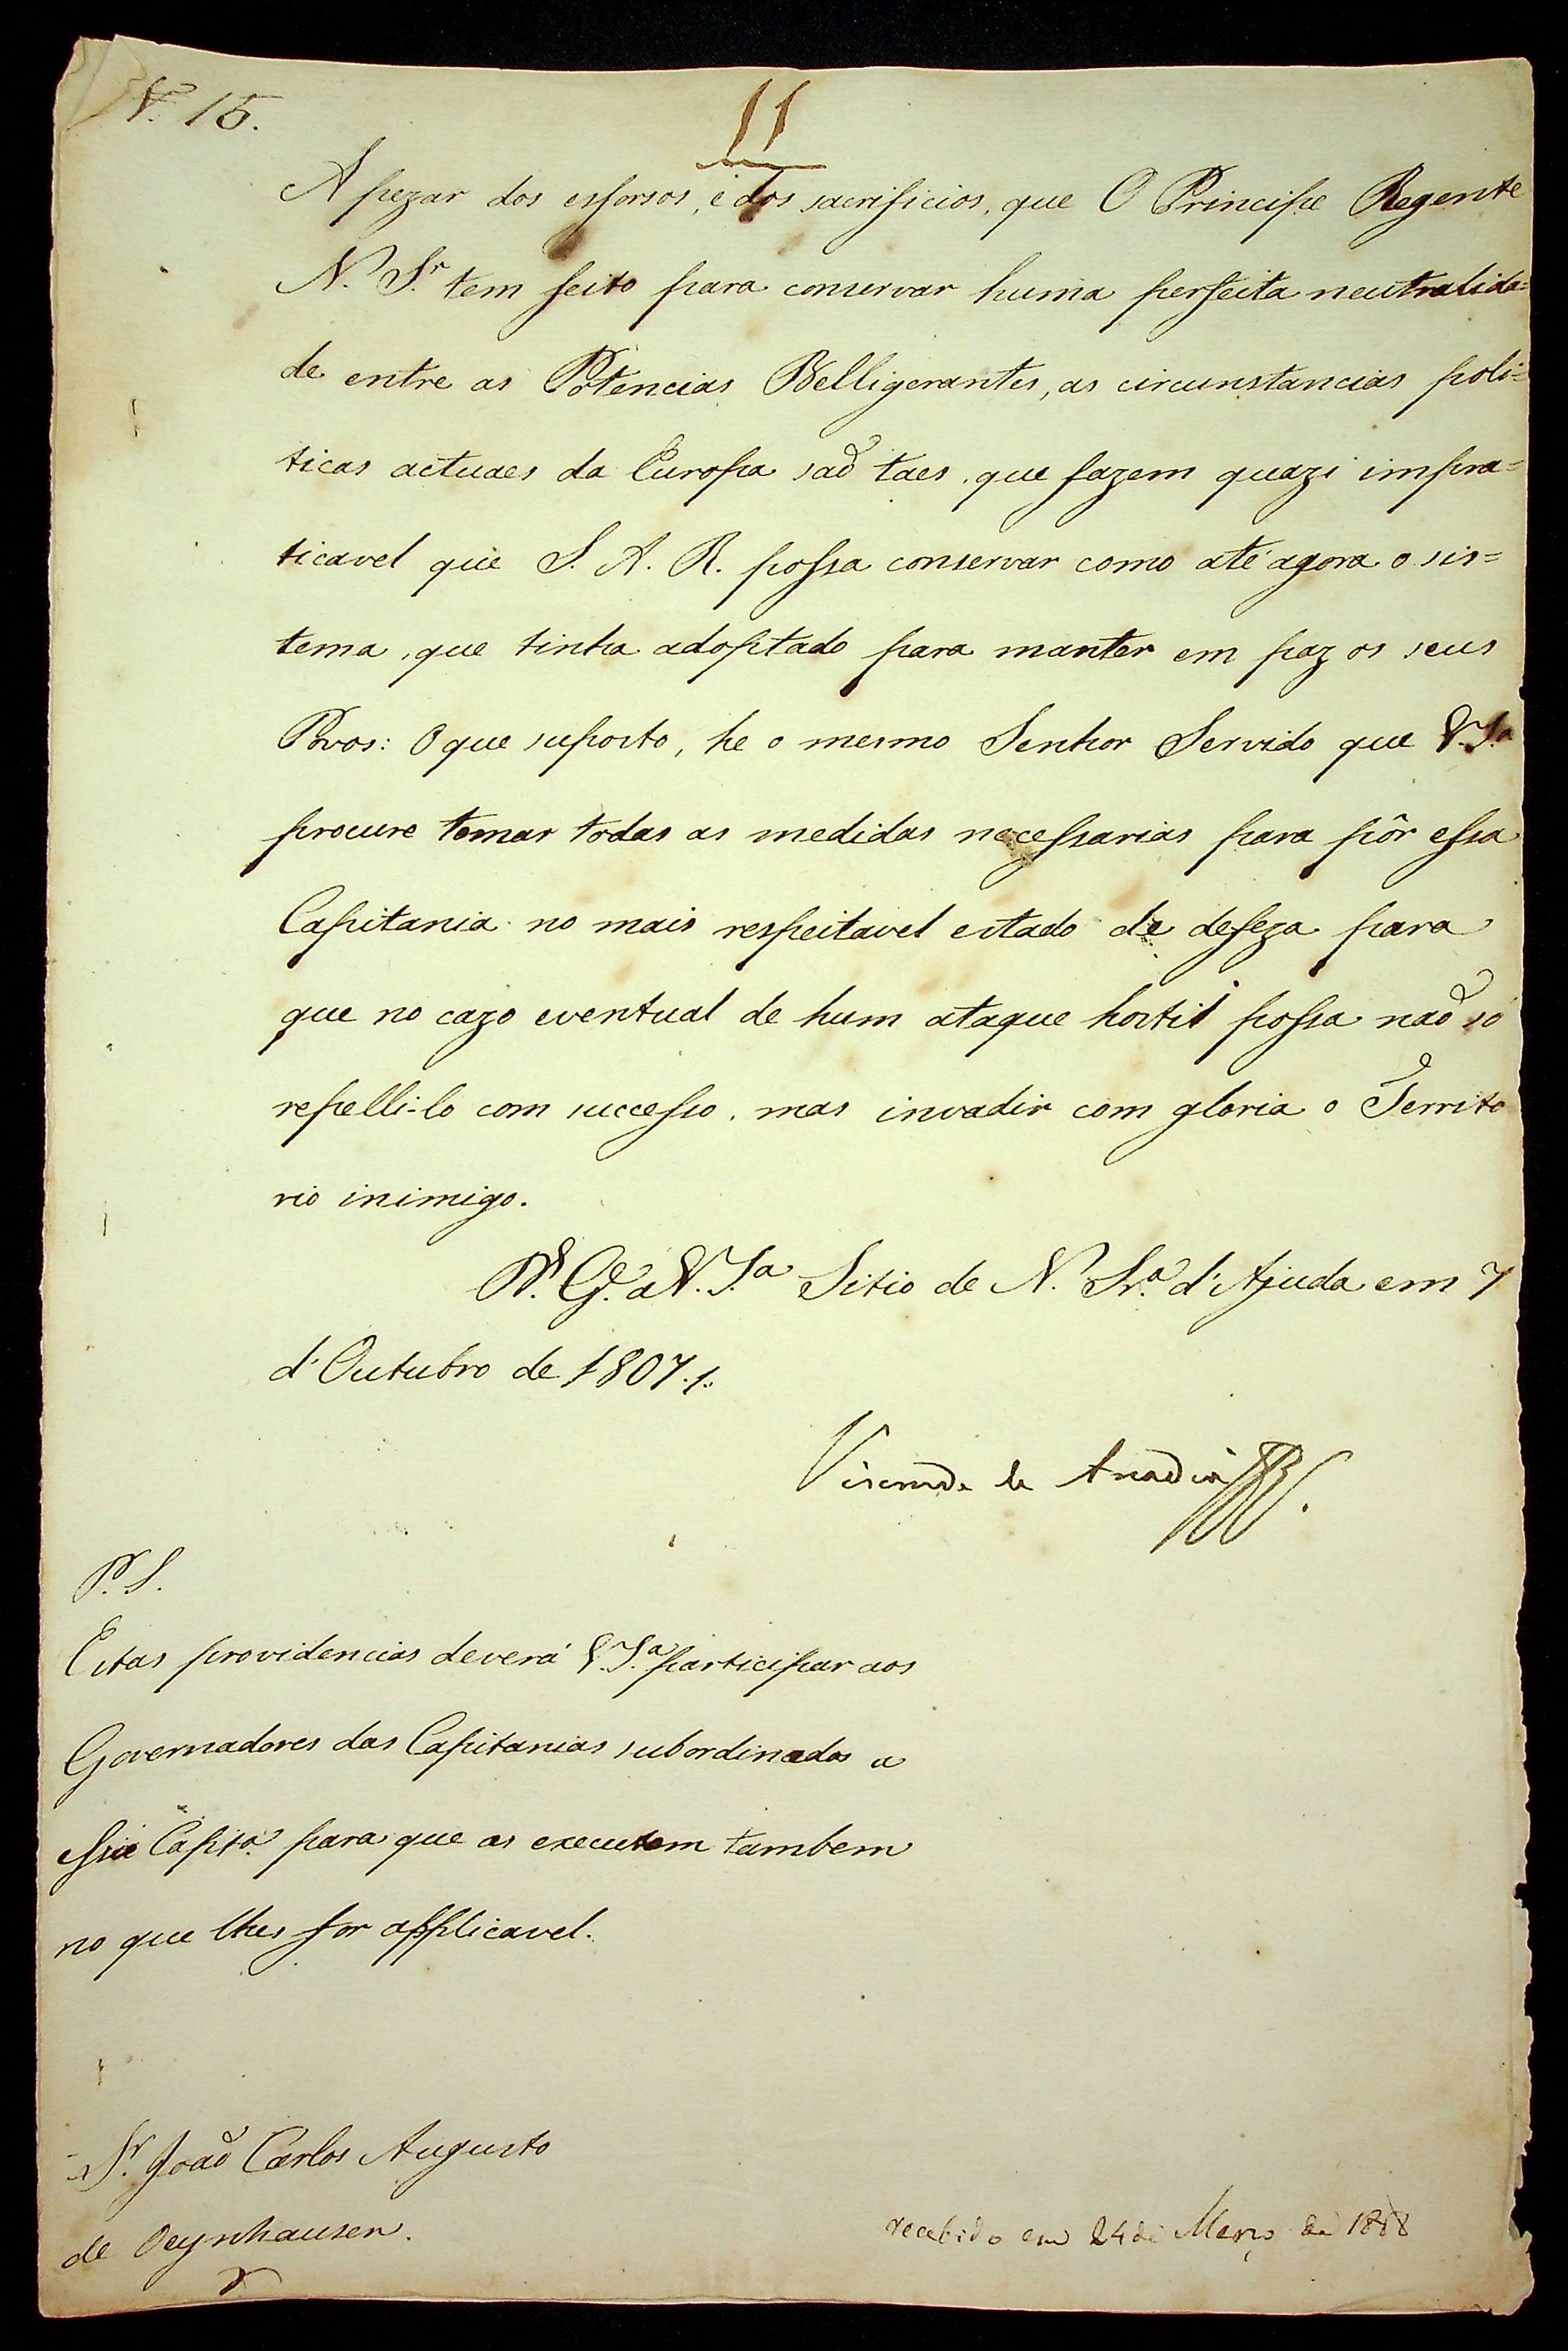 N. 15.
11
A pezar dos esforsos, e dos sacrificios, que O Principe Regente
N. Sr. tem feito para conservar huma perfeita neutralida=
de entre as Potencias Belligerantes, as circunstancias poli=
ticas actuaes da Europa saõ taes, que fazem quazi impra=
ticavel que S. A. R. possa conservar como até agora o sis=
tema, que tinha adoptado para manter em paz os seus
Povos: O que suposto, he o mesmo Senhor Servido que V. Sa.
procure tomar todas as medidas necessarias para pôr essa
Capitania no mais respeitavel estado de defeza para
que no cazo eventual de hum ataque hostil possa naõ só
repelli-lo com successo, mas invadir com gloria o Territo
rio inimigo.
Ds. Ge. a V. Sa. Sitio de N. Sra. d'Ajuda em 7
d'Outubro de 1807.
Visconde de Anadia
P. S.
Estas providencias deverá V. Sa. participar aos
Governadores das Capitanias subordinadas a
essa Capita. para que as executem tambem
no que lhes for applicavel.
Sr. Joaõ Carlos Augusto
de Oeynhausen.
recebido em 24 de Março de 1808